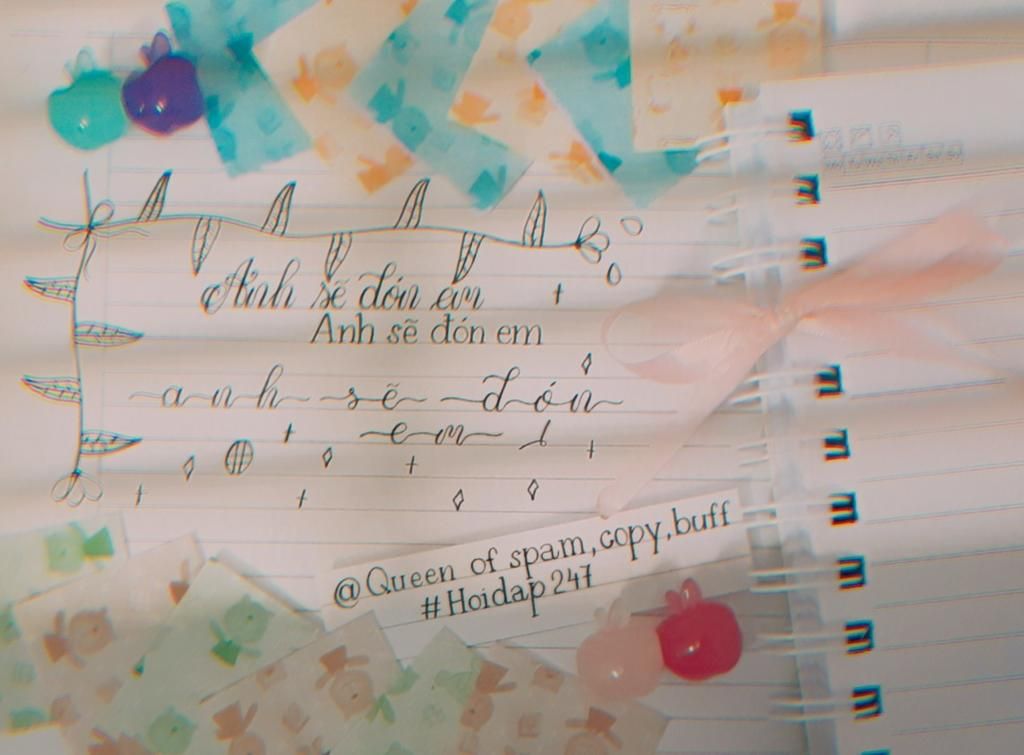 Anh sẽ đón em
Anh sẽ đón em
anh sẽ đón
em
@Queen of spam,copy,buff
#Hoidap247